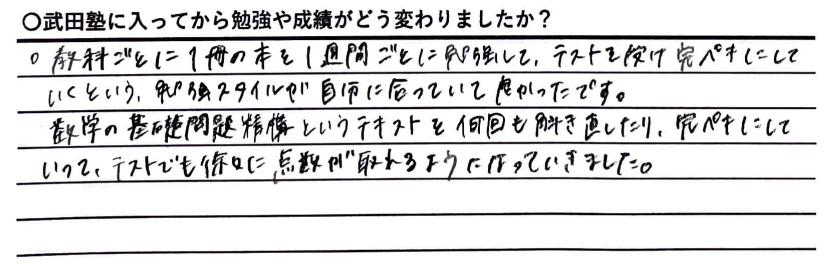 ○武田塾に入ってから勉強や成績がどう変わりましたか？
○ 教科ごとに1冊の本を1週間ごとに勉強して、テストを受け完ペキにして
いくという、勉強スタイルが自分に合っていて良かったです。
数学の基礎問題精構というテキストを何回も解き直したり、完ペキにして
いって、テストでも徐々に点数が取れるようになっていきました。